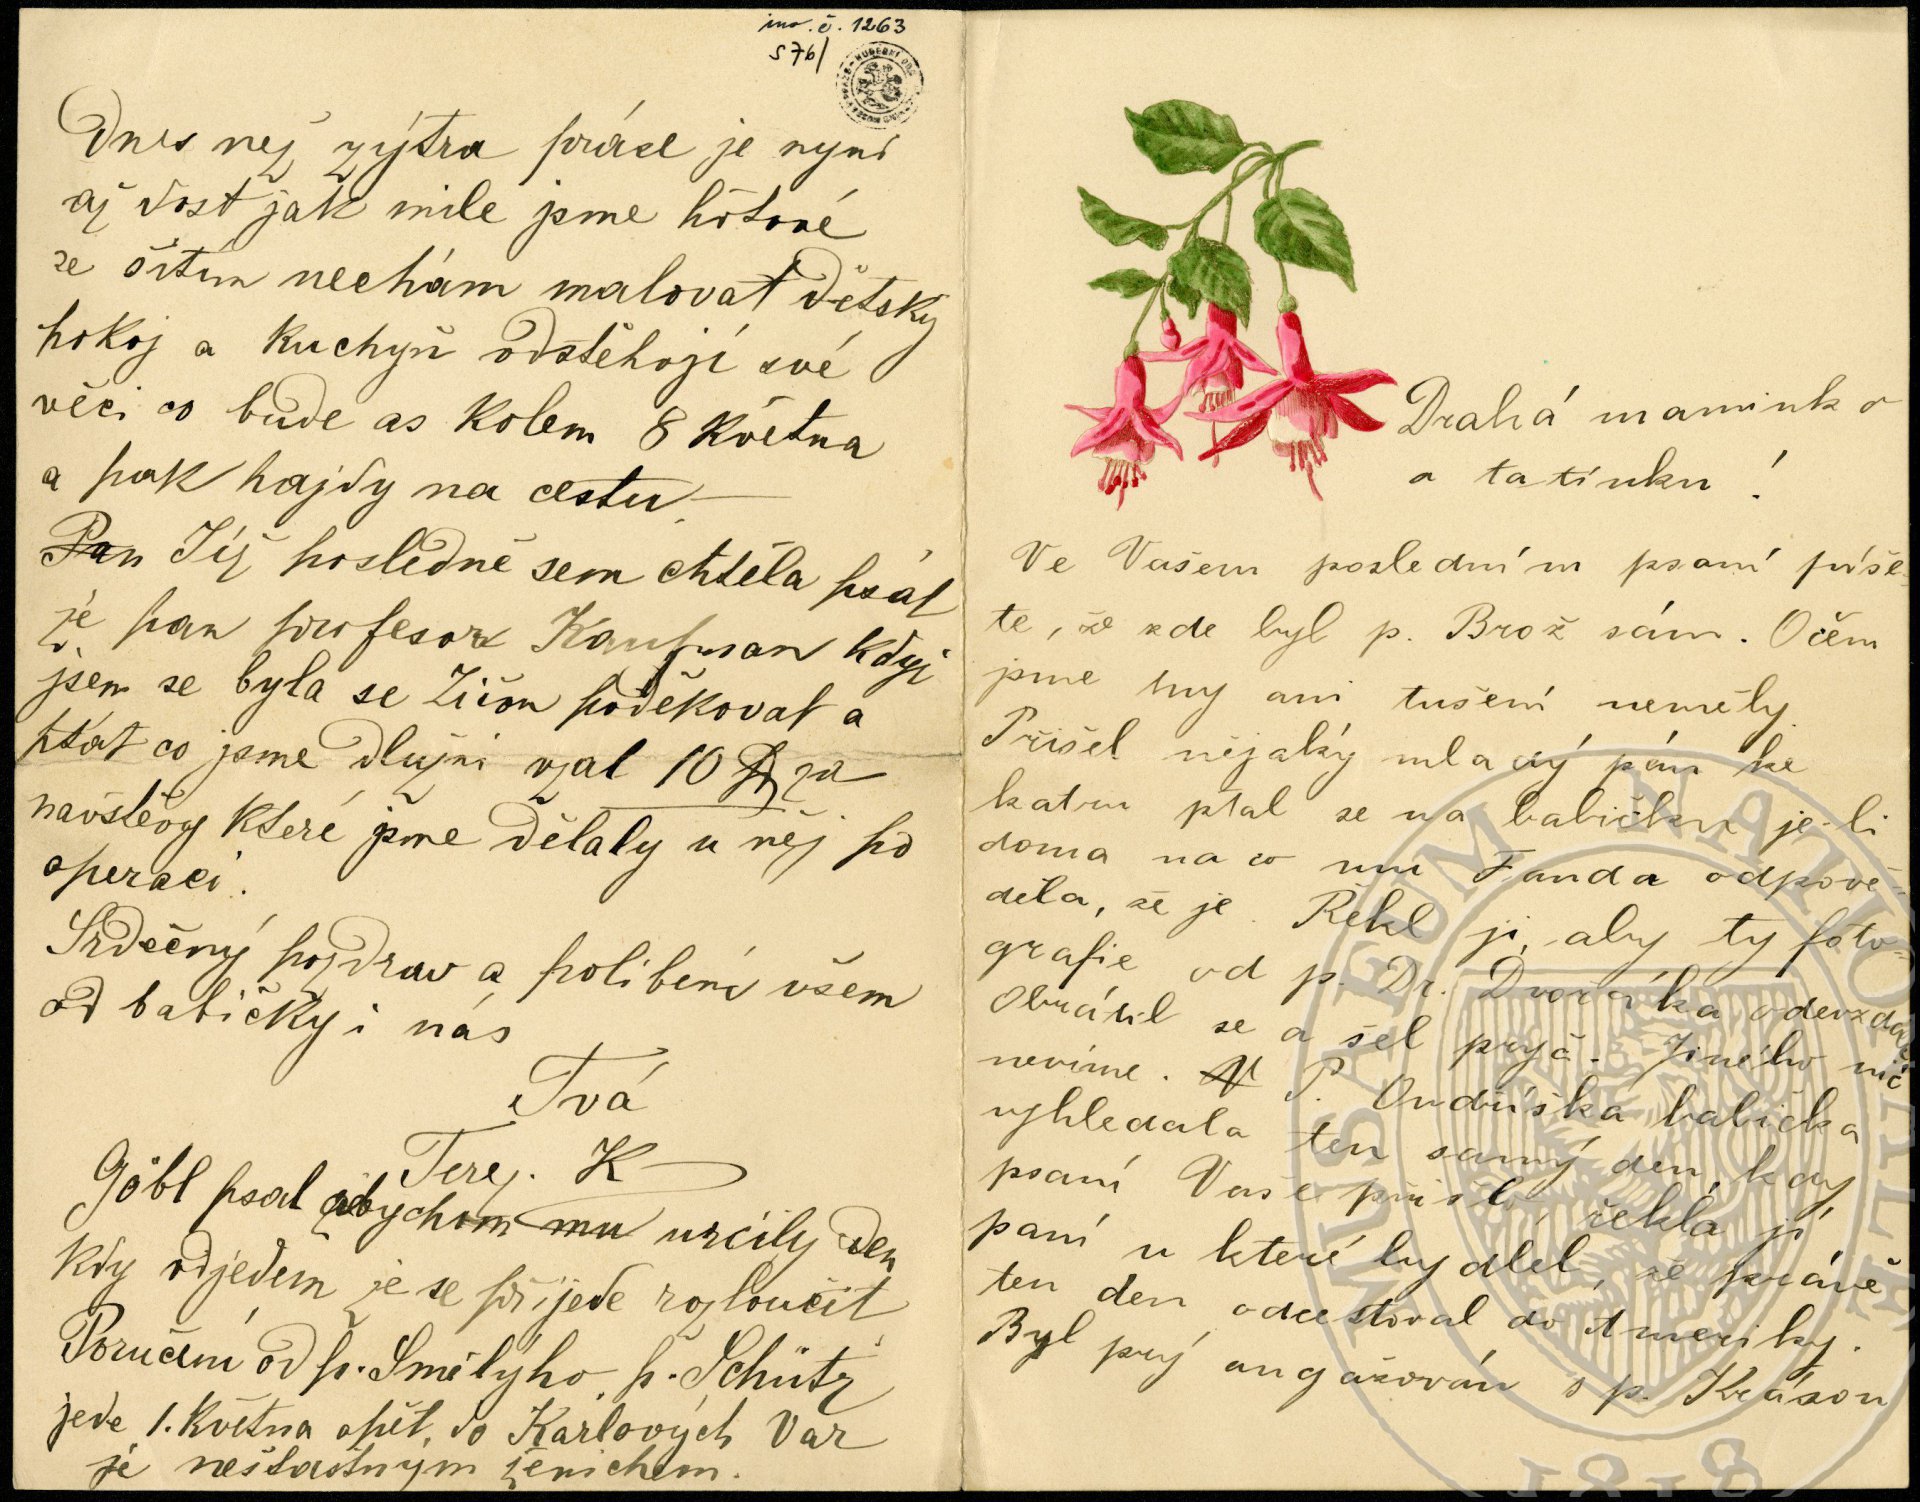 inv. č. 1263
S 76/
Dnes nej zýtra práce je nyní
až dost jak mile jsme hotové
se šitím nechám malovat Dětský
pokoj a kuchyň odstěhojí své
věci co bude as kolem 8 Května
a pak hajdy na cestu —
Pan Též posledně sem chtěla psát
že pan profesor Kaufman když
jsem se byla se poděkovat a
ptát co jsme dlužni vzal 10 za
návštěvy které jsme dělaly u něj po
operaci.
Srdečný pozdrav a políbení všem
od babičky i nás
Tvá
Terez. K
Göbl psal abychom mu určily den
kdy odjedem že se přijede rozloučit
Poručení od p. Smělýho p. Schütz
jede 1. Května opět do Karlových Var
je nešťastným ženichem.
Drahá maminko
a tatínku!
Ve Vašem posledním psaní píše-
te, že zde byl p. Brož sám. Očem
jsme my ani tušení neměly.
Přišel nějaký mladý pán ke
katru ptal se na babičku je-li
doma na co mu Fanda odpově-
děla, že je. Řekl jí, aby ty foto-
grafie od p. Dr. Dvořáka odevzdala
Obrátil se a šel pryč. Jiného nic
nevíme. P. Ondříška babička
vyhledala ten samý den, kdy
psaní Vaše přišlo, řekla jí
paní u které bydlel, že právě
ten den odcestoval do Ameriky.
Byl prý angažován s p. Krásou
MUSAEUM NATIONALE
1818